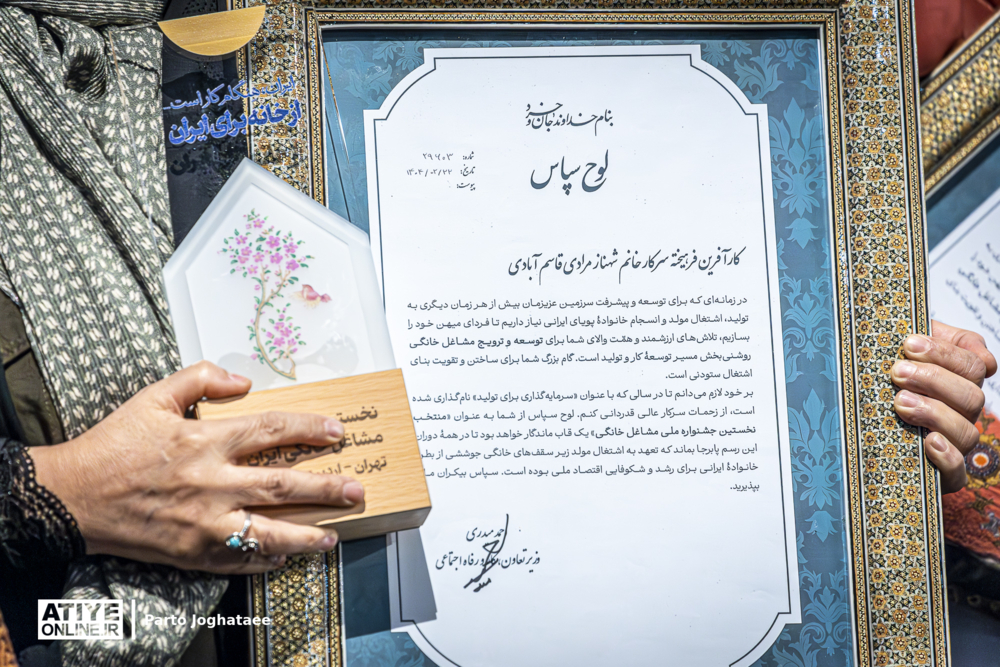 ایران، هنگام کار است
از خانه برای ایران
بنام خداوند جان و خرد
لوح سپاس
شماره: ۲۹۴۰۳
تاریخ: ۱۴۰۴/۰۲/۲۲
پیوست:
کارآفرین فرهیخته سرکار خانم شهناز مرادی قاسم آبادی
در زمانه‌ای که برای توسعه و پیشرفت سرزمین عزیزمان بیش از هر زمان دیگری به
تولید، اشتغال مولد و انسجام خانوادهٔ پویای ایرانی نیاز داریم تا فردای میهن خود را
بسازیم، تلاش‌های ارزشمند و همّت والای شما برای توسعه و ترویج مشاغل خانگی
روشنی‌بخش مسیر توسعهٔ کار و تولید است. گام بزرگ شما برای ساختن و تقویت بنای
اشتغال ستودنی است.
بر خود لازم می‌دانم تا در سالی که با عنوان «سرمایه‌گذاری برای تولید» نام‌گذاری شده
است، از زحمات سرکار عالی قدردانی کنم. لوح سپاس از شما به عنوان «منتخب
نخستین جشنواره ملی مشاغل خانگی» یک قاب ماندگار خواهد بود تا در همهٔ دوران
این رسم پابرجا بماند که تعهد به اشتغال مولد زیر سقف‌های خانگی جوششی از بطن
خانوادهٔ ایرانی برای رشد و شکوفایی اقتصاد ملی بوده است. سپاس بیکران
بپذیرید.
احمد میدری
وزیر تعاون، کار و رفاه اجتماعی
نخستی
مشاغل خانگی ایران
تهران -
ATIYE
ONLINE.IR
Parto Joghataee